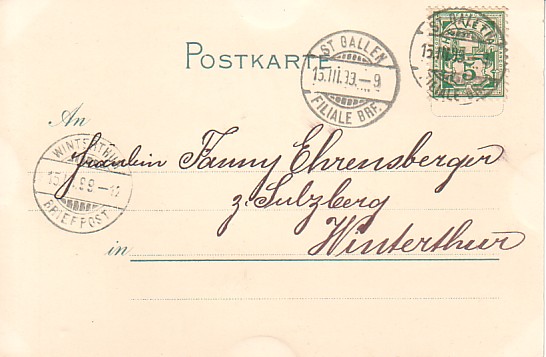 POSTKARTE
ST GALLEN
15.III.99.–9
FILIALE BRF.
15.III.99
5
An
Fräulein Fanny Ehrensberger
z. Sulzberg
in Winterthur
WINTERTHUR
15.III.99–12
BRIEFPOST